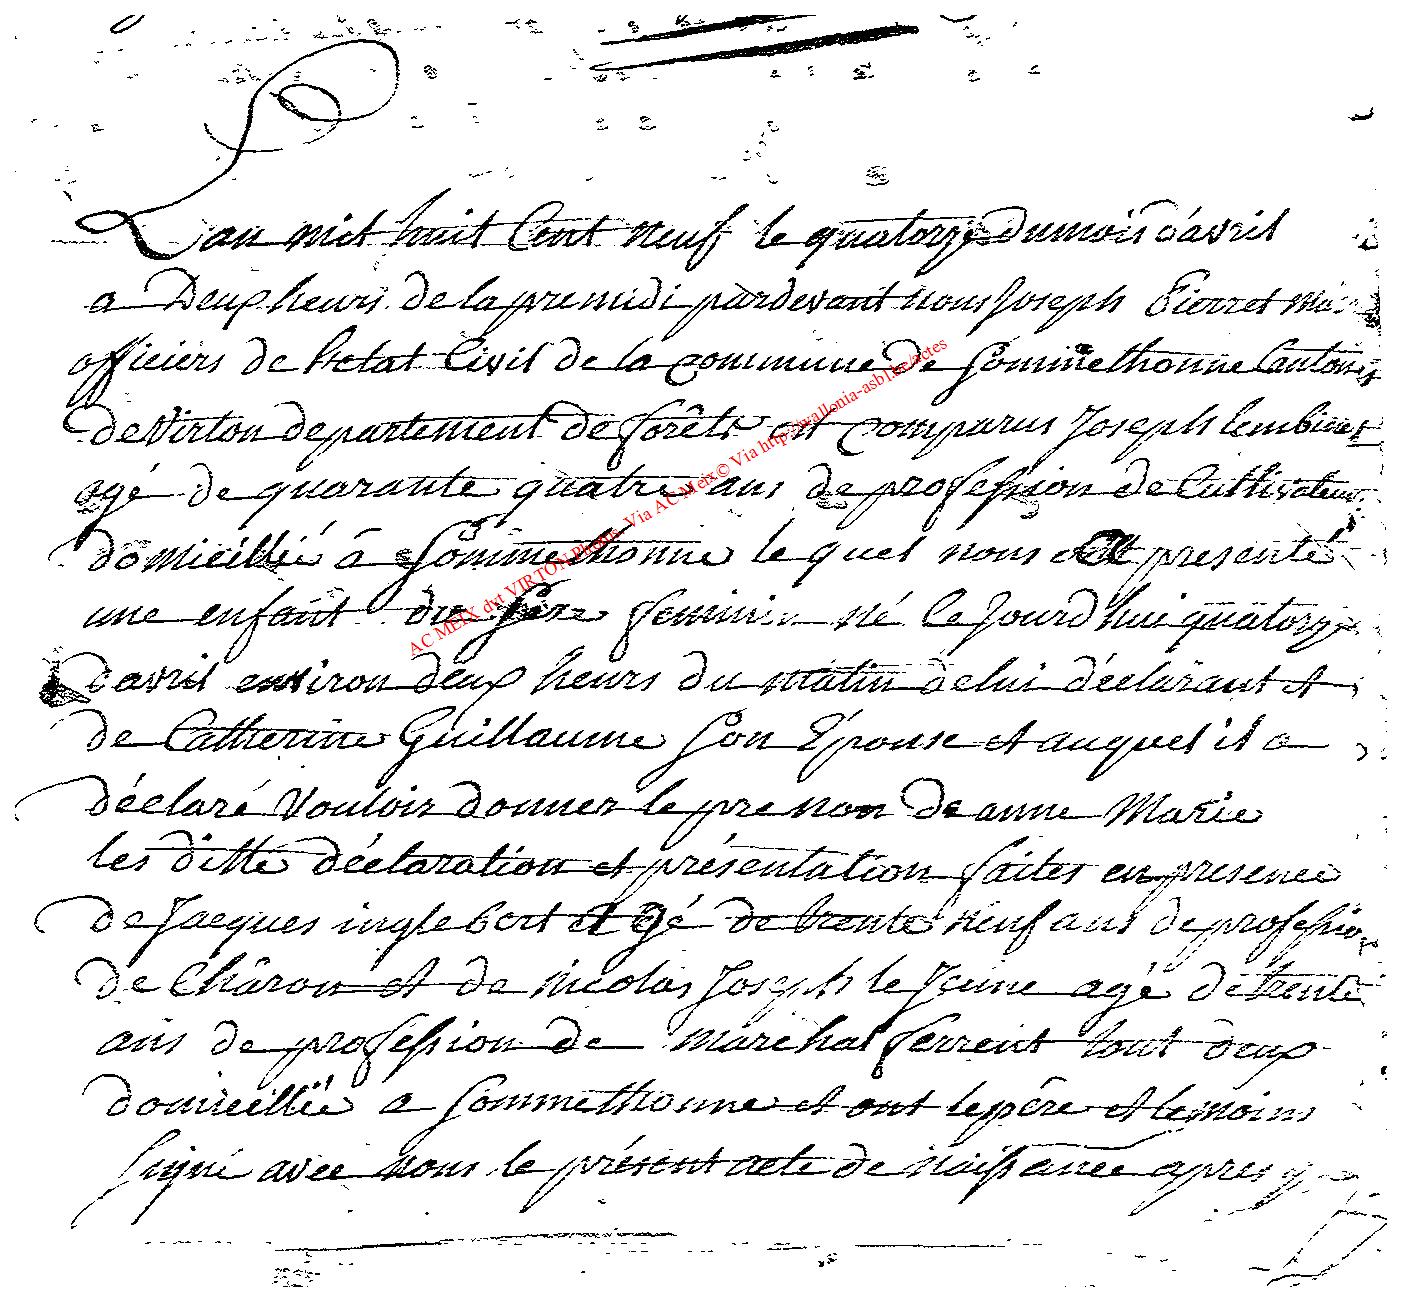 L'an mil huit Cent neuf le quatorze du mois d'avril
a Deux heurs de la premidi pardevant nous Joseph Pierret
officiers de l'etat Civil de la commune de Sommethonne Canton
de Virton departement de forêts est comparus Joseph lembinet
agé de quarante quatre ans de profession de Cultivateur
domicillié â Sommethonne le quel nous est presenté
une enfant du sexe feminin né le Jourd'hui quatorze
d'avril environ deux heurs du matin de lui déclarant et
de Catherine Guillaume son Épouse et auquel il a
déclaré Vouloir donner le prenon de anne Marie
les ditte déclaration et présentation faites en presence
de Jacques inglebert agé de trente neuf ans de profession
de Châron et de Nicolas Joseph le Jeune agé de trente
ans de profession de marechal ferrent tout deux
domicillié a Sommethonne et ont le père et temoins
signé avec nous le présent acte de naissance apres
AC MEIX dvt VIRTON Photo: Via AC Meix© Via http://wallonia-asbl.be/actes